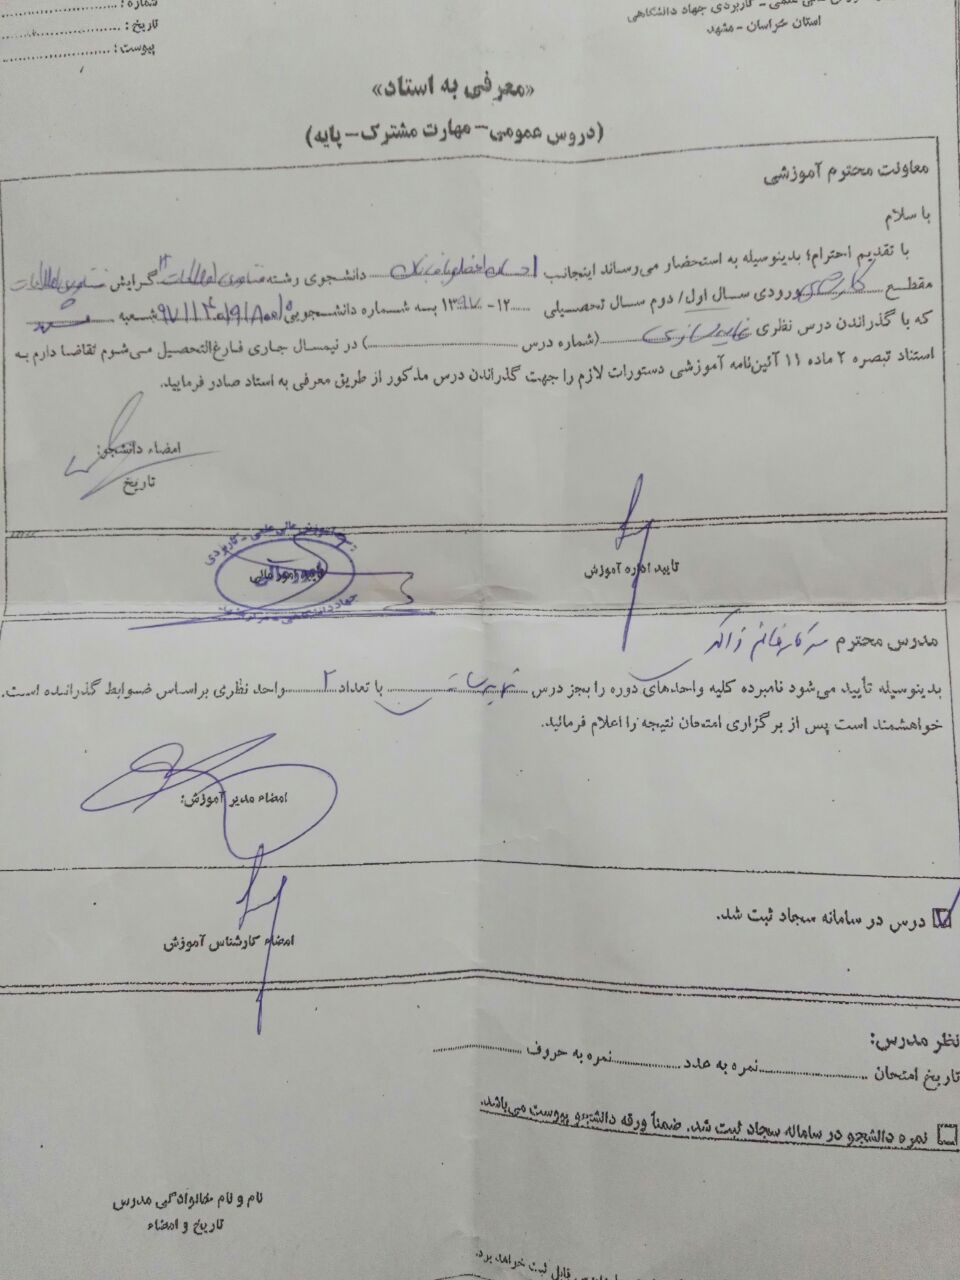 شماره :
تاریخ :
پیوست :
علمی - کاربردی جهاد دانشگاهی
استان خراسان - مشهد
«معرفی به استاد»
(دروس عمومی - مهارت مشترک - پایه)
معاونت محترم آموزشی
با سلام
با تقدیم احترام؛ بدینوسیله به استحضار می‌رساند اینجانب دانشجوی رشته فناوری اطلاعات گرایش فناوری اطلاعات
مقطع ورودی سال اول/ دوم سال تحصیلی ۱۳۹۷ - ۱۲ به شماره دانشجویی شعبه مشهد
که با گذراندن درس نظری (شماره درس) در نیمسال جاری فارغ‌التحصیل می‌شوم تقاضا دارم به
استناد تبصره ۲ ماده ۱۱ آئین‌نامه آموزشی دستورات لازم را جهت گذراندن درس مذکور از طریق معرفی به استاد صادر فرمایید.
امضاء دانشجو:
تاریخ
تایید اداره آموزش
آموزش عالی علمی - کاربردی
امور مالی
جهاد دانشگاهی
مدرس محترم سرکار خانم
بدینوسیله تأیید می‌شود نامبرده کلیه واحدهای دوره را بجز درس با تعداد ۲ واحد نظری براساس ضوابط گذرانده است.
خواهشمند است پس از برگزاری امتحان نتیجه را اعلام فرمائید.
امضاء مدیر آموزش:
درس در سامانه سجاد ثبت شد.
امضاء کارشناس آموزش
نظر مدرس:
تاریخ امتحان نمره به عدد نمره به حروف
نمره دانشجو در سامانه سجاد ثبت شد. ضمناً ورقه دانشجو پیوست می‌باشد.
نام و نام خانوادگی مدرس
تاریخ و امضاء
قابل ثبت خواهد بود.